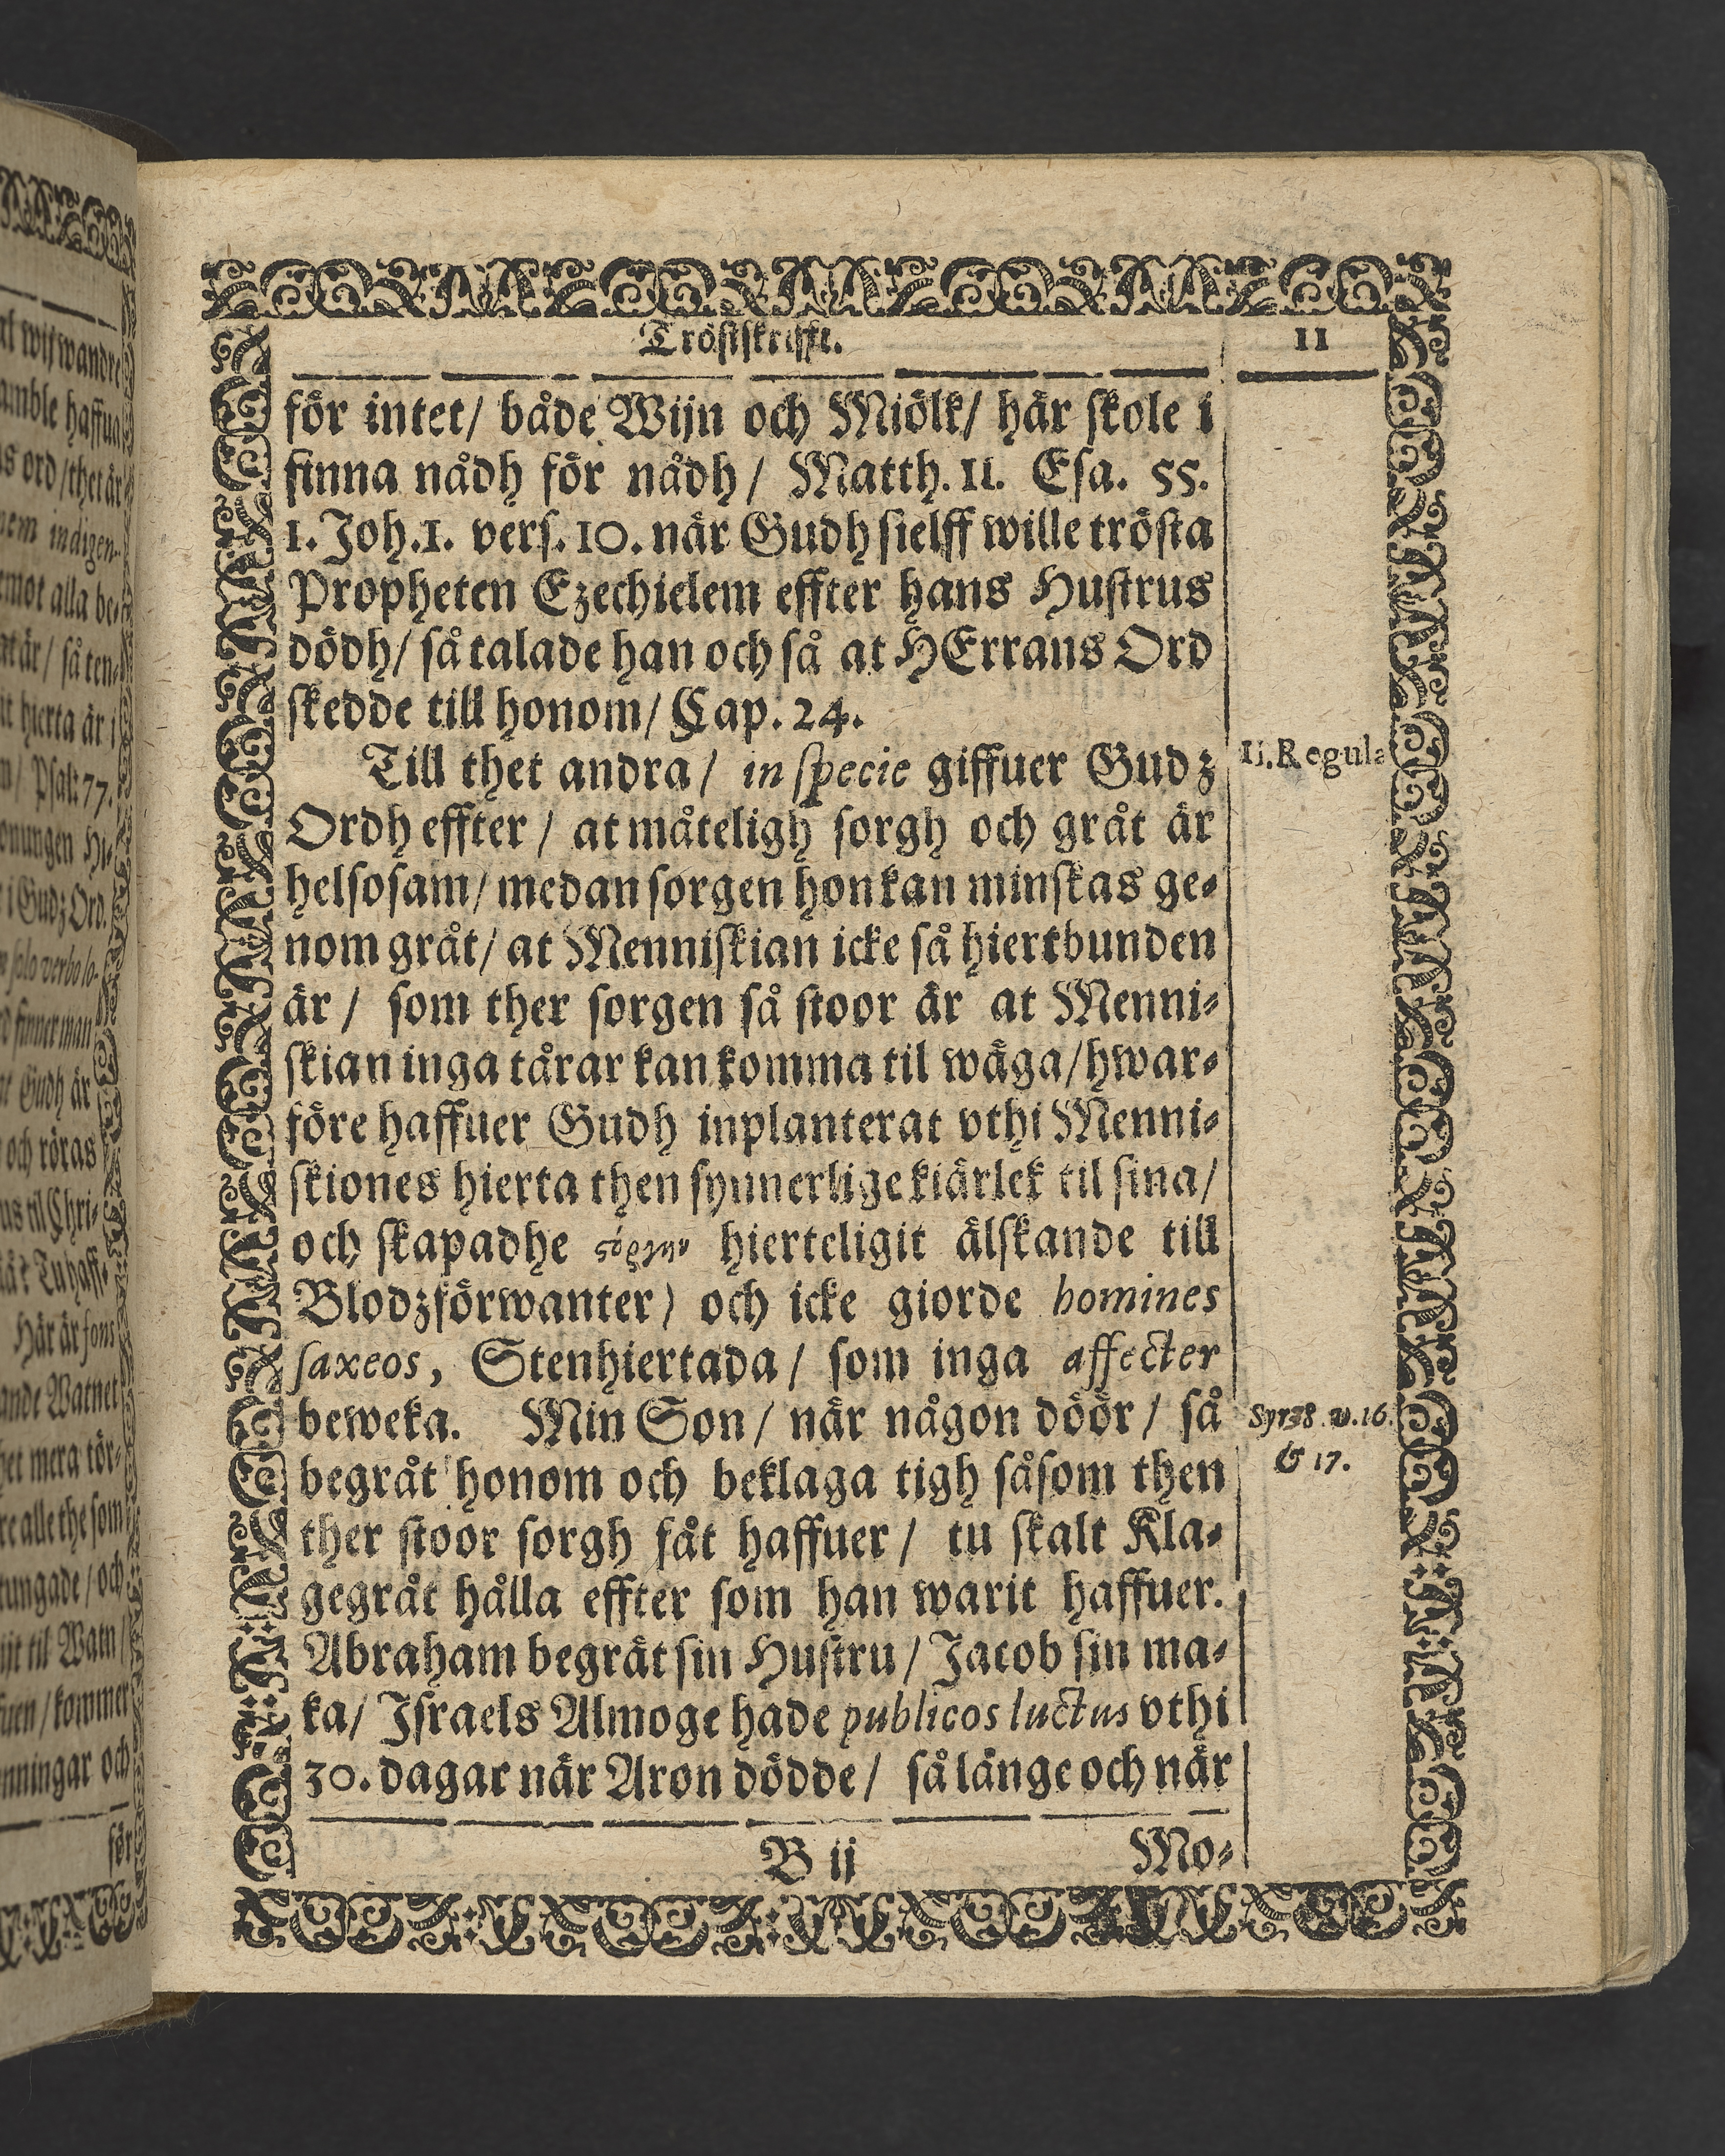 Tröstskrifft.
11
för intet/ både Wijn och Miölk/ här skole i
finna nådh för nådh/ Matth. 11. Esa. 55.
1. Joh. 1. vers. 10. när Gudh sielff wille trösta
Propheten Ezechielem effter hans Hustrus
dödh/ så talade han och så at HErrans Ord
skedde till honom/ Cap. 24.
Till thet andra/ in specie giffuer Gudz
II. Regula
Ordh effter/ at måteligh sorgh och gråt är
helsosam/ medan sorgen hon kan minskas ge-
nom gråt/ at Menniskian icke så hiertbunden
är/ som ther sorgen så stoor är at Menni-
skian inga tårar kan komma til wäga/ hwar-
före haffuer Gudh inplanterat vthi Menni-
skiones hierta then synnerlige kiärlek til sina/
och skapadhe hierteligit älskande till
Blodzförwanter) och icke giorde homines
saxeos, Stenhiertada/ som inga affecter
beweka. Min Son/ när någon döör/ så
Syr. 38. v. 16.
begråt honom och beklaga tigh såsom then
& 17.
ther stoor sorgh fåt haffuer/ tu skalt Kla-
gegråt hålla effter som han warit haffuer.
Abraham begrät sin Hustru/ Jacob sin ma-
ka/ Israels Almoge hade publicos luctus vthi
30. dagar när Aron dödde/ så länge och när
B ij
Mo-